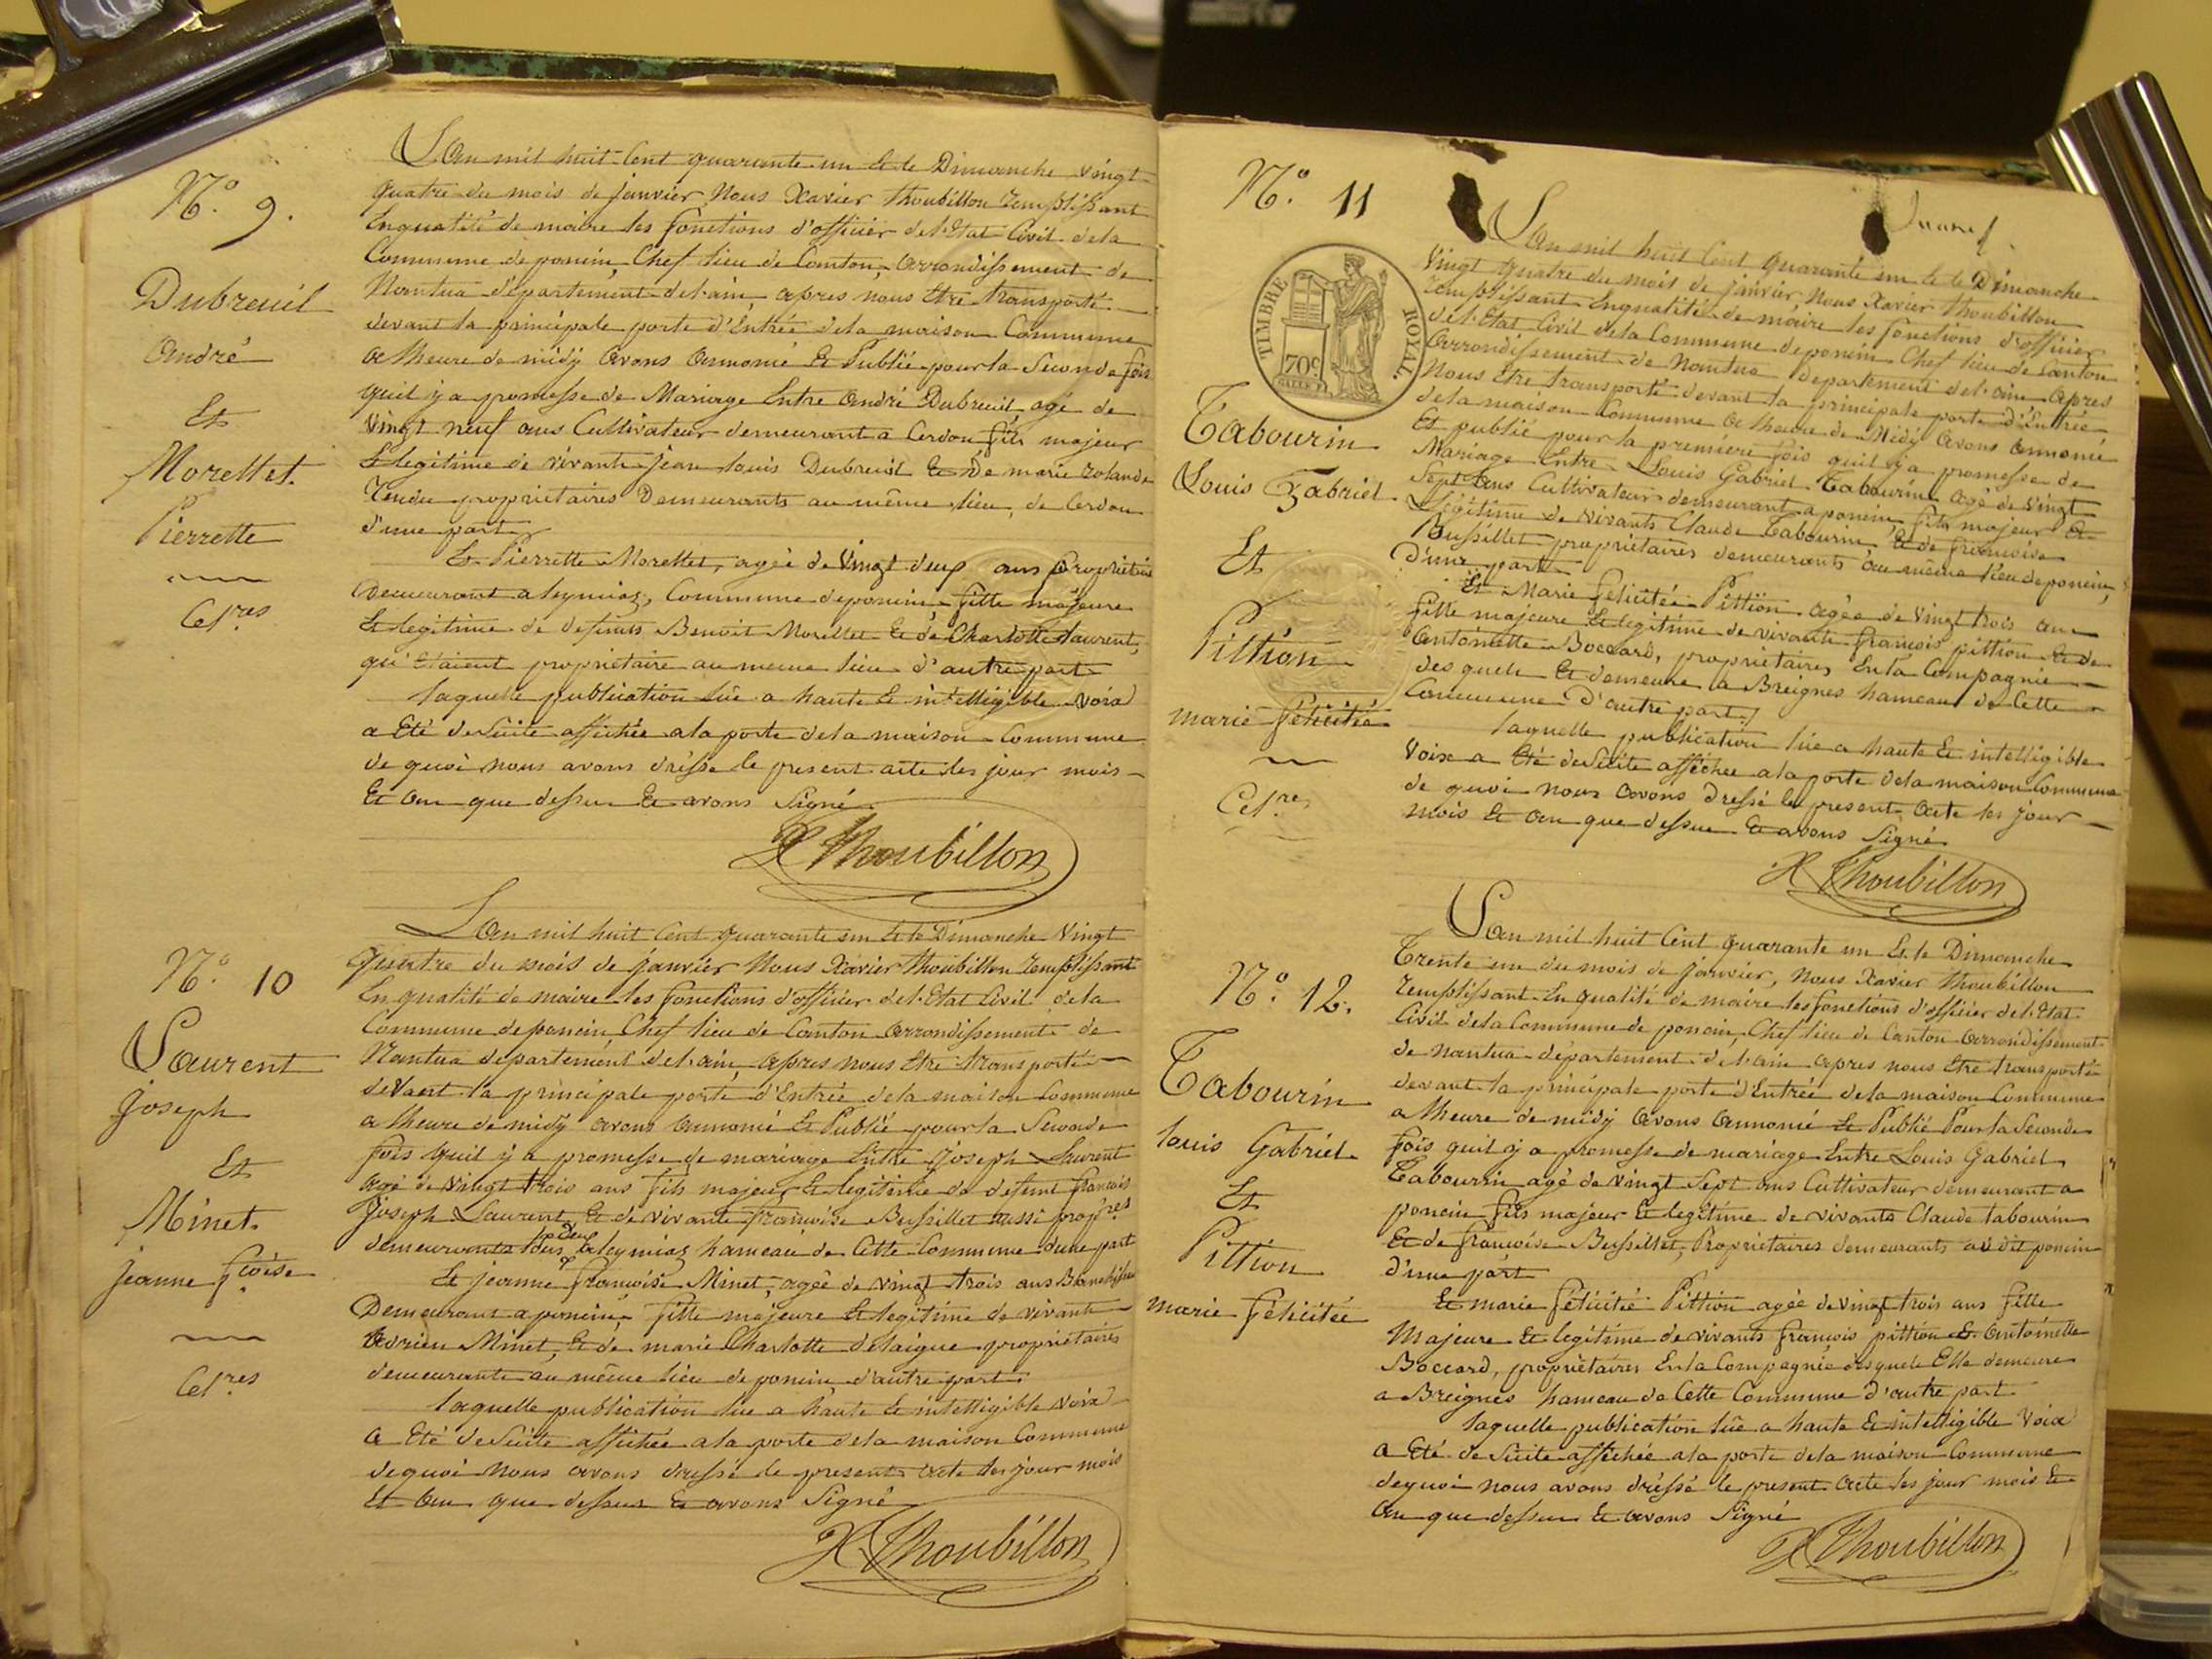 N.o 9.
Dubreuil
André
Et
Morellet.
Pierrette
Cel.res
L'An mil huit Cent quarante un Et le Dimanche vingt
quatre du mois de janvier Nous Xavier Thoubillon remplissant
En qualité de maire les fonctions d'officier de l'Etat Civil de la
Commune de poncin, Chef lieu de Canton, arrondissement de
Nantua département de l'ain après nous être transporté
devant la principale porte d'Entrée de la maison Commune
a lheure de midy avons annoncé Et Publié pour la Seconde fois
quil y a promesse de Mariage Entre André Dubreuil, agé de
Vingt neuf ans Cultivateur demeurant a Cerdon fils majeur
Et legitime de vivants jean louis Dubreuil Et De marie rolande
Tendu proprietaires Demeurants au même lieu, de Cerdon
d'une part
Et Pierrette Morellet, agée de Vingt deux ans Propriétaire
Demeurant a leymiaz, Commune de poncin fille majeure
Et legitime de defunts Benoit Morellet Et de Charlotte Laurent,
qui Etaient propriétaire au meme lieu d'autre part
laquelle publication lûe a haute Et intelligible voix
a Eté de Suite affichée a la porte de la maison Commune
de quoi nous avons dréssé le present acte les jour mois
Et an que dessus Et avons Signé
X Thoubillon
N.o 10
Laurent
Joseph
Et
Minet.
jeanne f.çoise
Cel.res
L'An mil huit Cent quarante un Et le Dimanche Vingt
quatre du mois de janvier Nous Xavier Thoubillon remplissant
En qualité de maire les fonctions d'officier de l'Etat Civil de la
Commune de poncin, Chef lieu de Canton arrondissement de
Nantua département de l'ain, apres nous être transporté
devant la principale porte d'Entrée de la maison Commune
a lheure de midy avons annoncé Et Publié pour la Seconde
fois quil y a promesse de mariage Entre Joseph Laurent
agé de vingt trois ans fils majeur Et legitime de defunt francois
Joseph Laurent, Et de vivante françoise Bussillet aussi prop.res
demeurants tous deux a leymiaz hameau de Cette Commune d'une part
Et jeanne françoise Minet, agée de vingt trois ans Blanchisseuse
Demeurant a poncin, fille majeure Et legitime de vivants
Adrien Minet, Et de marie Charlotte delaigue propriétaires
demeurants au même lieu de poncin, d'autre part.
laquelle publication lûe a haute Et intelligible Voix
a Eté de Suite affichée a la porte de la maison Commune
de quoi Nous avons dressé le present acte les jour mois
Et an que dessus Et avons Signé
X. Thoubillon
N.o 11
TIMBRE ROYAL.
70c
Tabourin
Louis Gabriel.
Et
Pittion
marie felicitée
Cel.res
L'An mil huit Cent quarante un Et le Dimanche
Vingt quatre du mois de janvier, Nous Xavier Thoubillon
remplissant En qualité de maire les fonctions d'officier
de l'Etat Civil de la Commune de poncin Chef lieu de canton
arrondissement de Nantua département de l'ain Apres
Nous être transporté devant la principale porte d'Entrée
de la maison Commune a lheure de Midy avons annoncé
Et publié pour la premiere fois quil y a promesse de
Mariage Entre Louis Gabriel Tabourin, agé de vingt
Sept ans Cultivateur demeurant a poncin, fils majeur Et
Légitime de vivants Claude Tabourin Et de francoise
Bussillet propriétaires demeurants au même lieu de poncin,
D'une part
Et Marie felicitée Pittion agée de Vingt trois ans
fille majeure Et legitime de vivants françois pittion Et de
Antoinette Boccard, propriétaires En la Compagnie
des quels Et demeure a Breignes hameau de Cette
Commune D'autre part
laquelle publication lûe a haute Et intelligible
Voix a Eté de Suite affichée a la porte de la maison Commune
de quoi nous avons Dressé le present acte les jour
mois Et an que dessus Et avons Signé
X Thoubillon
N.o 12.
Tabourin
louis Gabriel
Et
Pittion
marie félicitée
L'An mil huit Cent quarante un Et le Dimanche
Trente un du mois de janvier, Nous Xavier Thoubillon
remplissant En qualité de maire les fonctions d'officier de l'Etat
Civil de la Commune de poncin, Chef lieu de Canton arrondissement
de nantua département de l'ain apres nous être transporté
devant la principale porte d'Entrée de la maison Commune
a lheure de midy avons annoncé Et Publié Pour la Seconde
fois quil y a promesse de mariage Entre Louis Gabriel
Tabourin agé de vingt Sept ans Cultivateur demeurant a
poncin fils majeur Et legitime de vivants Claude tabourin
Et de françoise Bussillet, Propriétaires demeurants au dit poncin
d'une part
Et marie félicitée Pittion agée de vingt trois ans fille
Majeure Et legitime de vivants francois pittion Et Antoinette
Boccard, propriétaires En la Compagnie desquels Elle demeure
a Breignes hameau de Cette Commune d'autre part
laquelle publication lûe a haute Et intelligible Voix
a Eté de Suite affichée a la porte de la maison Commune
de quoi nous avons dréssé le present acte les jour mois Et
an que dessus Et avons Signé
X Thoubillon